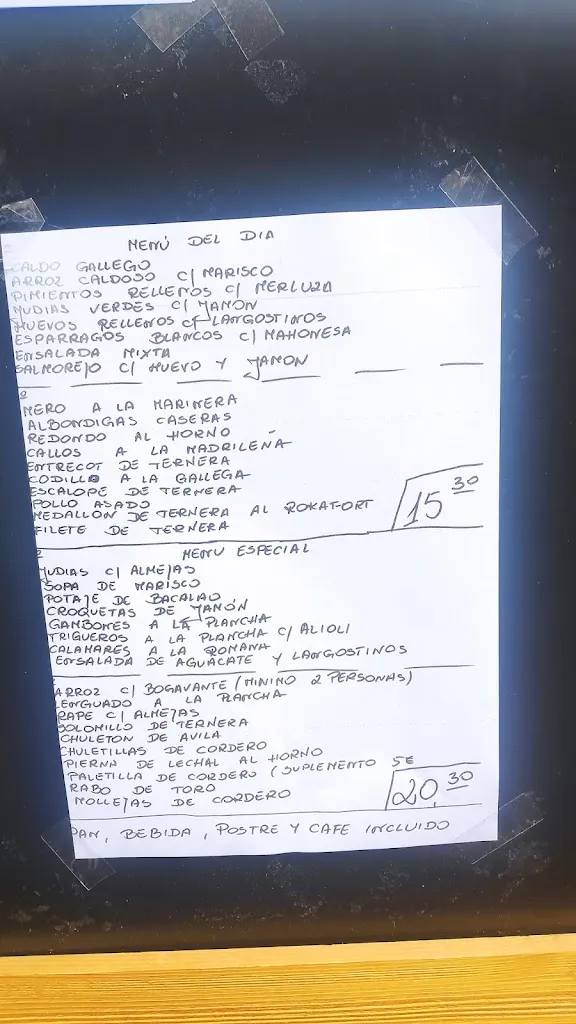 MENÚ DEL DIA
CALDO GALLEGO
ARROZ CALDOSO C/ MARISCO
PIMIENTOS RELLENOS C/ MERLUZA
JUDIAS VERDES C/ JAMON
HUEVOS RELLENOS C/ LANGOSTINOS
ESPARRAGOS BLANCOS C/ MAHONESA
ENSALADA MIXTA
SALMOREJO C/ HUEVO Y JAMON
2
MERO A LA MARINERA
ALBONDIGAS CASERAS
REDONDO AL HORNO
CALLOS A LA MADRILEÑA
ENTRECOT DE TERNERA
CODILLO A LA GALLEGA
ESCALOPE DE TERNERA
POLLO ASADO
MEDALLON DE TERNERA AL ROKAFORT
FILETE DE TERNERA
15 30
MENU ESPECIAL
JUDIAS C/ ALMEJAS
SOPA DE MARISCO
POTAJE DE BACALAO
CROQUETAS DE JAMÓN
GAMBONES A LA PLANCHA
TRIGUEROS A LA PLANCHA C/ ALIOLI
CALAMARES A LA ROMANA
ENSALADA DE AGUACATE Y LANGOSTINOS
ARROZ C/ BOGAVANTE (MINIMO 2 PERSONAS)
LENGUADO A LA PLANCHA
RAPE C/ ALMEJAS
SOLOMILLO DE TERNERA
CHULETON DE AVILA
CHULETILLAS DE CORDERO
PIERNA DE LECHAL AL HORNO
PALETILLA DE CORDERO (SUPLEMENTO 5€
RABO DE TORO
MOLLEJAS DE CORDERO
20,30
PAN, BEBIDA, POSTRE Y CAFE INCLUIDO